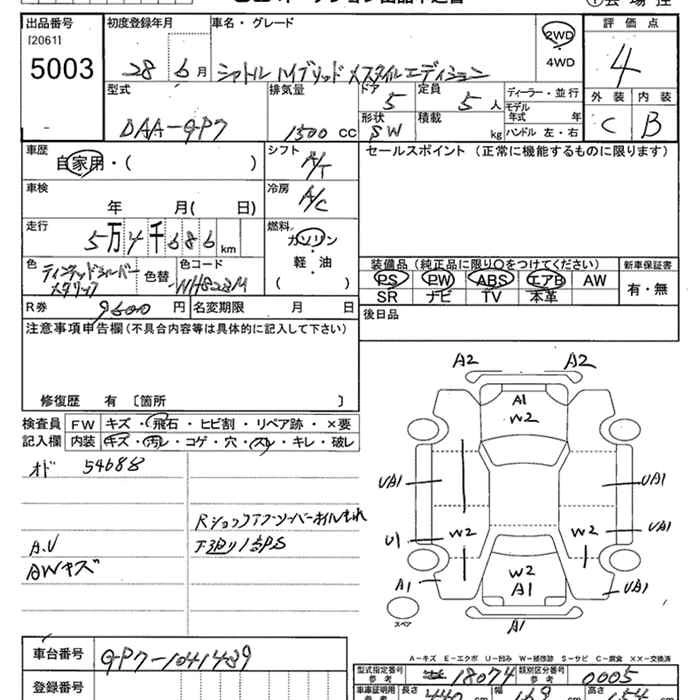 出品番号 初度登録年月 車名・グレード 評価点
[20611]
5003 28年 6月 シャトル ハイブリッド Xスタイルエディション 2WD 4
4WD
型式 排気量 ドア 定員 ディーラー・並行 外装 内装
5 5人 モデル年式 年
DAA-GP7 1500 CC 形状 SW 積載 kg ハンドル 左・右 C B
車歴 シフト セールスポイント (正常に機能するものに限ります)
自家用・( ) A/T
車検 冷房
年 月( 日) A/C
走行 燃料
5万4千686 km ガソリン
軽・油
( )
色 色替 色コード 装備品 (純正品に限り○をつけてください) 新車保証書
ティンテッドシルバーメタリック NH823M PS PW ABS エアB AW 有・無
SR ナビ TV 本革
R券 9600円 名変期限 月 日 後日品
注意事項申告欄 (不具合内容等は具体的に記入して下さい)
修復歴 有 〔箇所 〕
検査員 FW キズ・飛石・ヒビ割・リペア跡・×要
記入欄 内装 キズ・汚レ・コゲ・穴・スレ・キレ・破レ
オド 54688
Rショックアブソーバーオイルもれ
A.V 下廻り1部PS
AWキズ
A2 A2
A1
W2
UA1 UA1
UA1
U1 W2 W2
W2
A1 A1 UA1
スペア A1
A－キズ E－エクボ U－凹み W－補修跡 S－サビ C－腐食 XX－交換済
車台番号 GP7-1041489
型式指定番号 参考 18074 類別区分番号 参考 0005
登録番号 車庫証明用 参考 長さ 440 幅 169 高さ 154